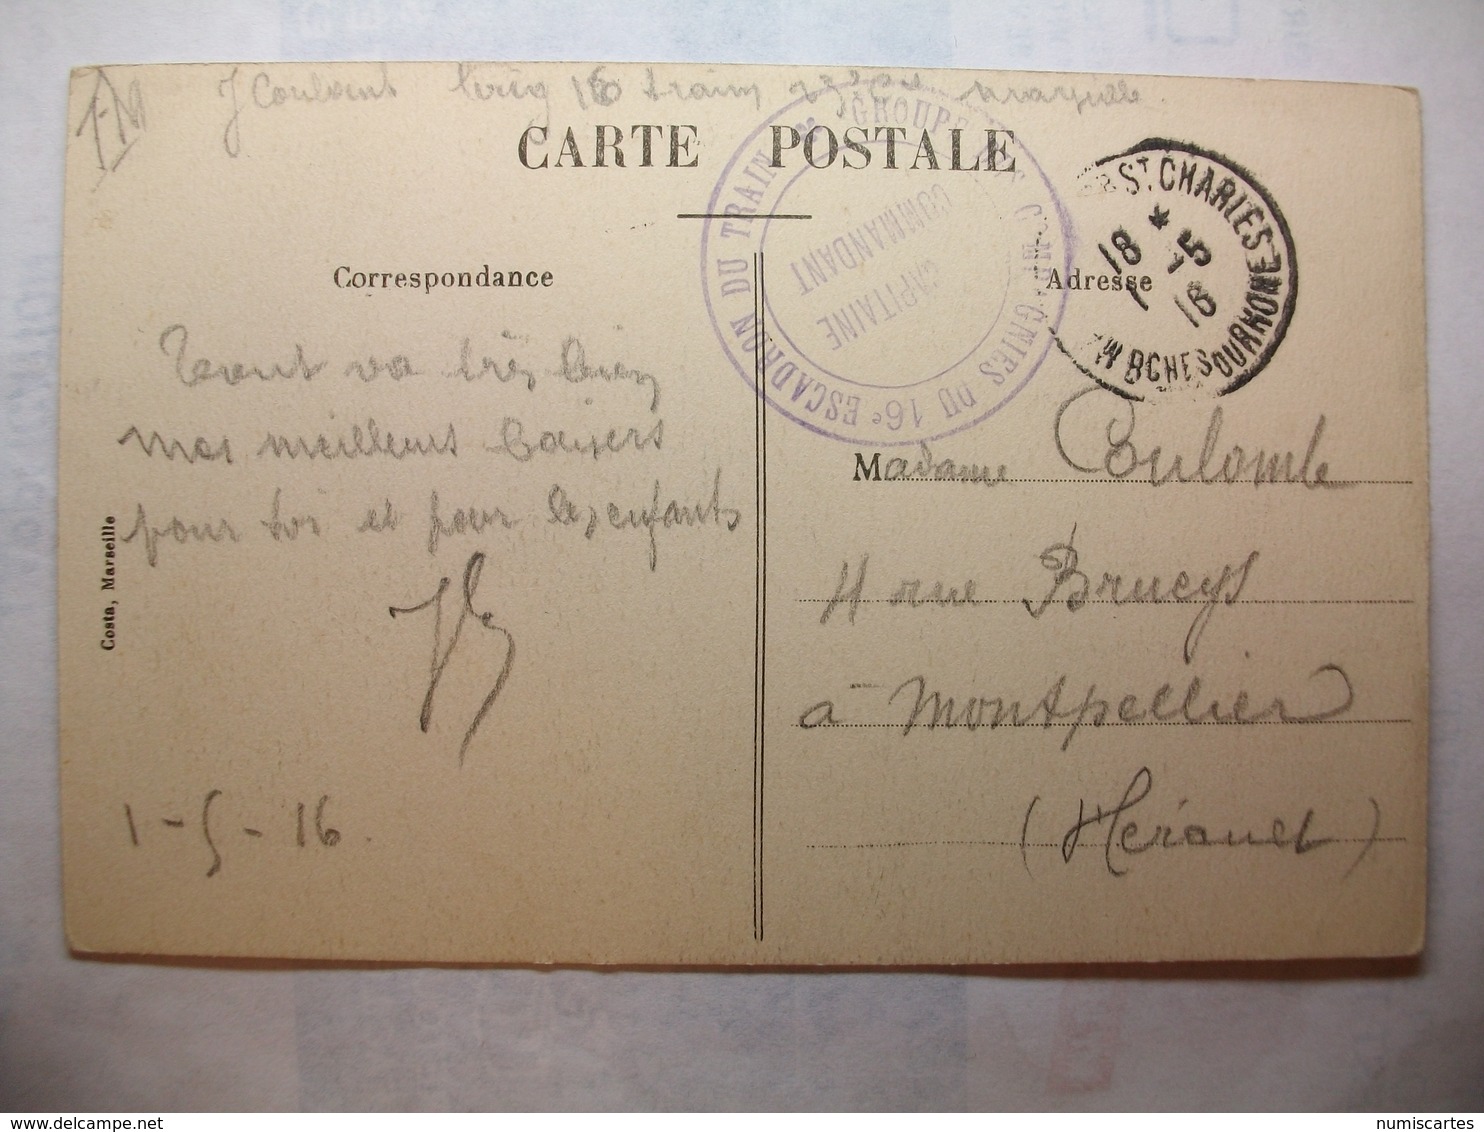 FM
J Coulomb 16 train
CARTE POSTALE
GROUPE DES COMPAGNIES DU 16e ESCADRON DU TRAIN
CAPITAINE
COMMANDANT
ST CHARLES
18 * 5
1 16
BCHES DU RHONE
Correspondance
Adresse
Tout va très bien
mes meilleurs baisers
pour toi et pour les enfants
1-5-16.
Costa, Marseille
Madame Coulomb
4 rue Brueys
à Montpellier
(Hérault)
www.delcampe.net
numiscartes